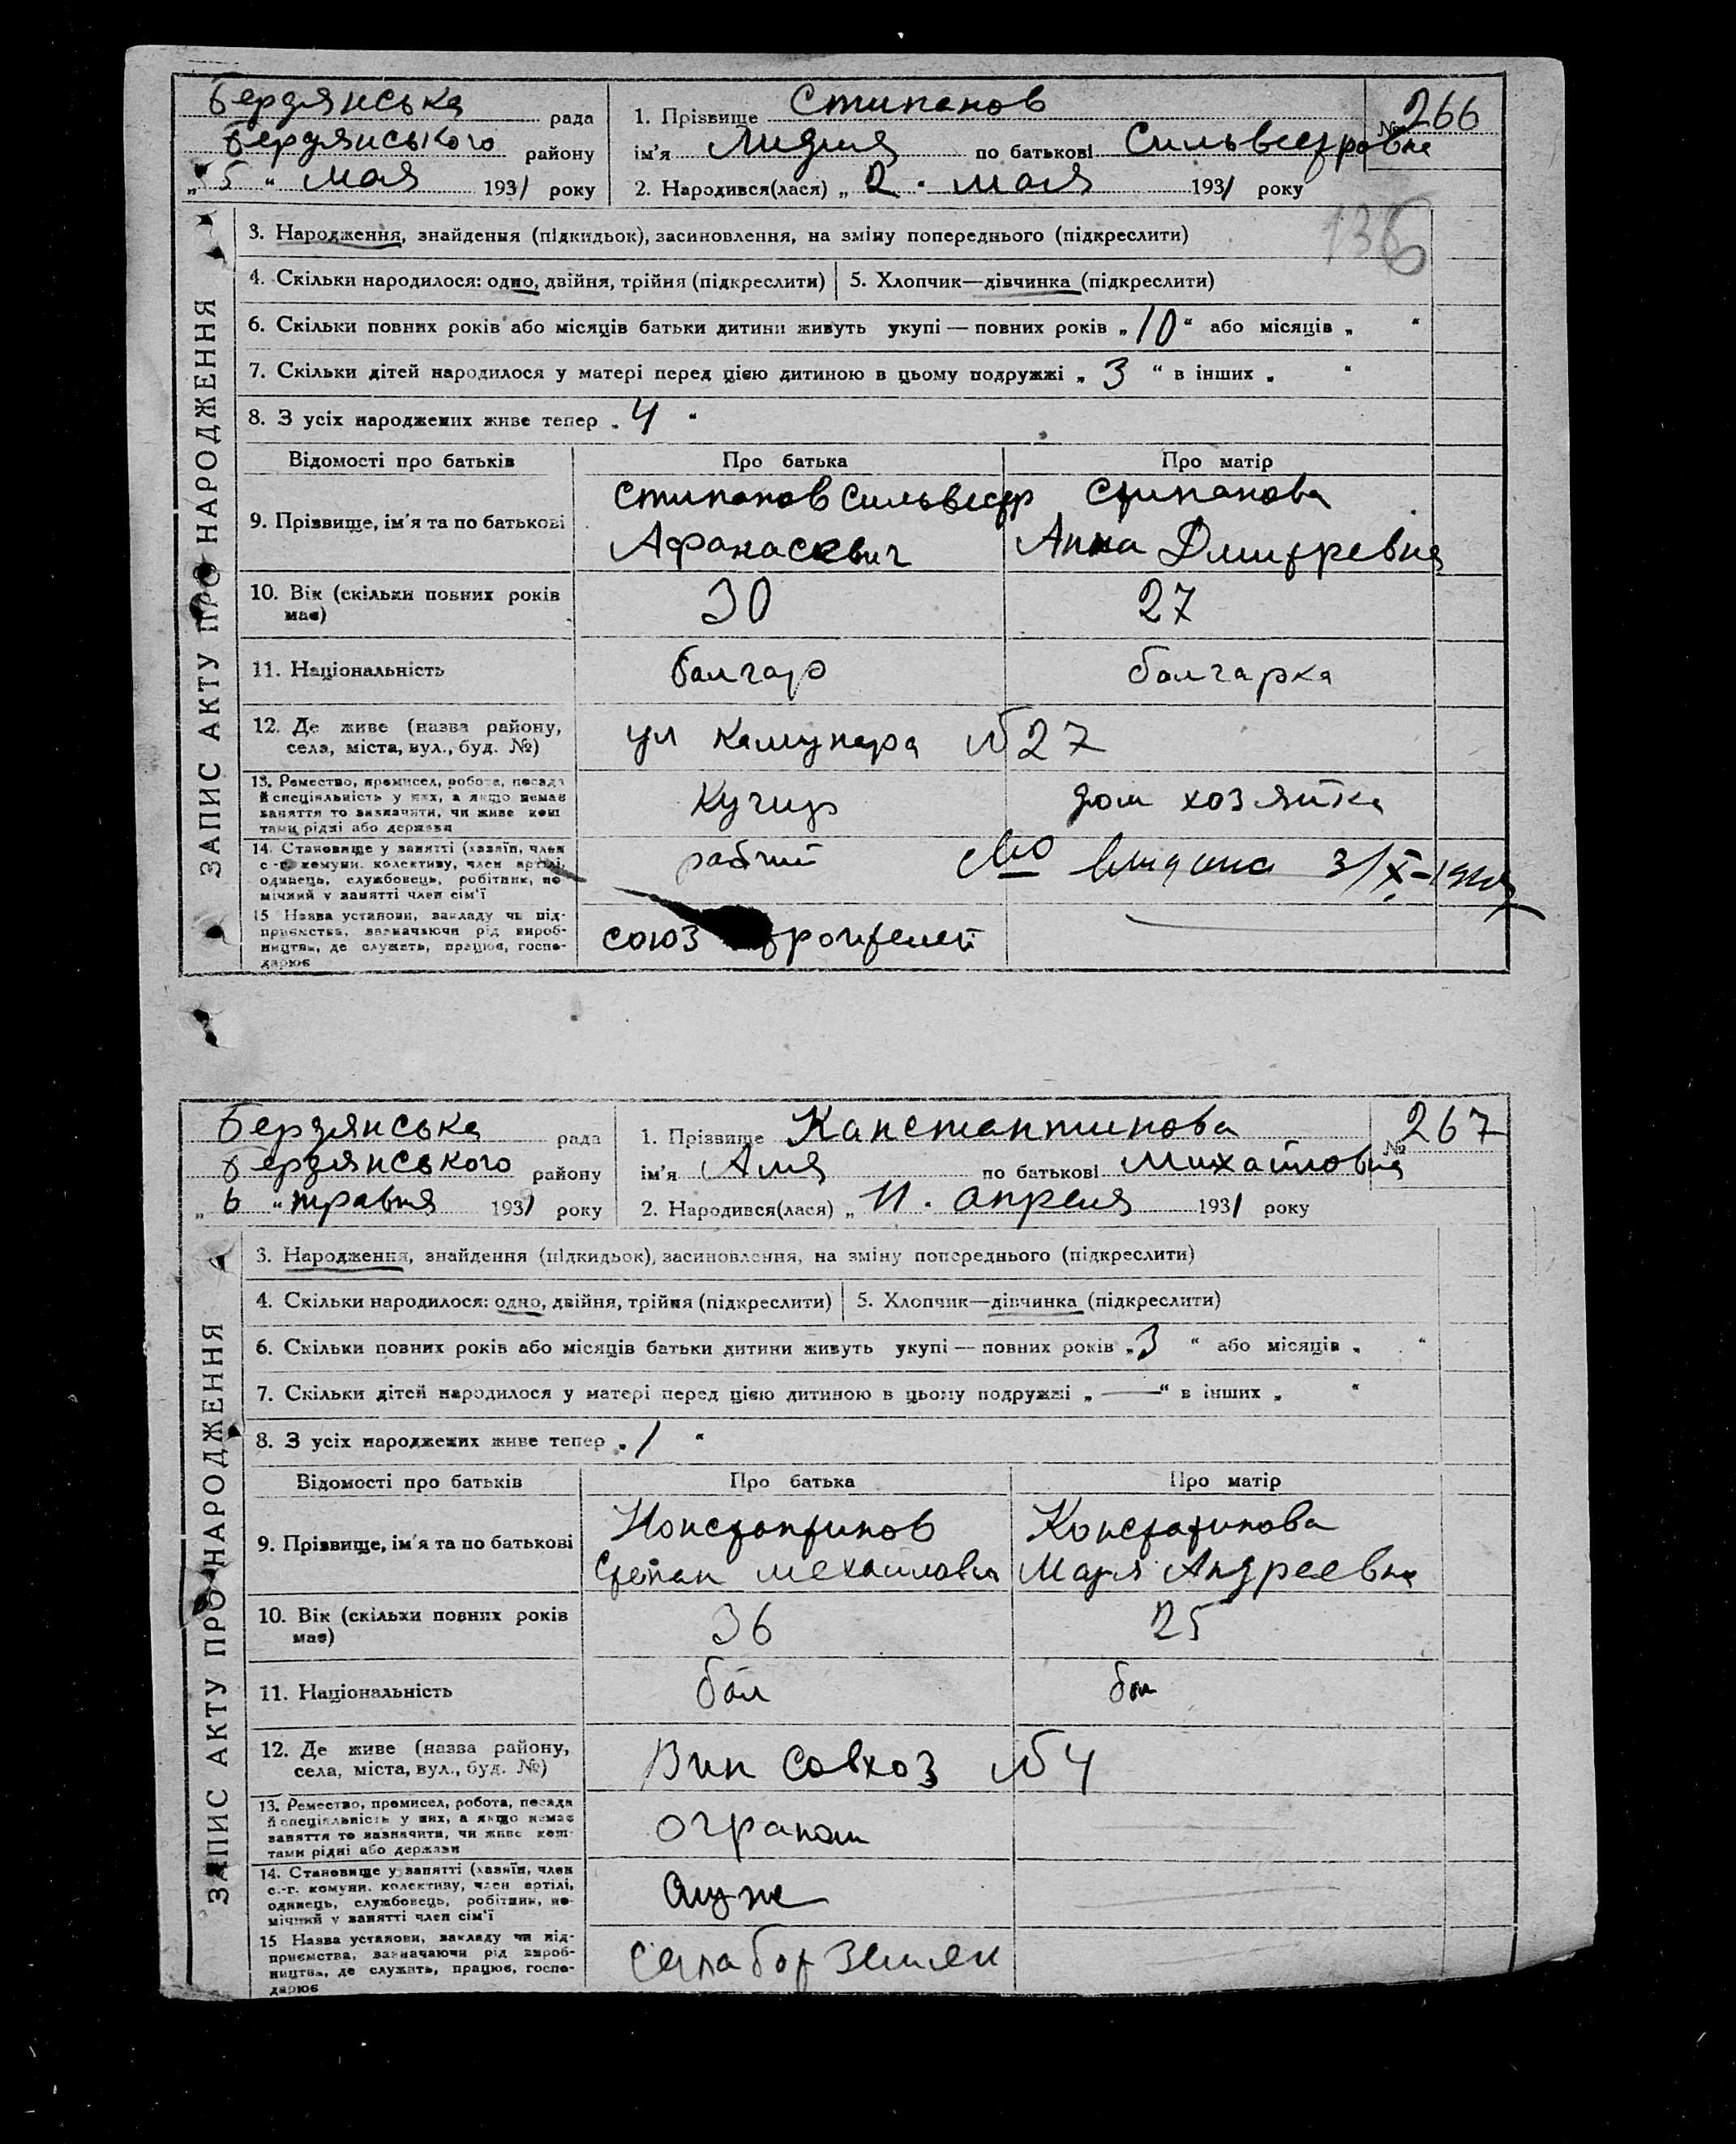 Бердянська рада
Бердянського району
„5“ мая 1931 року
1. Прізвище Стипанов
№ 266
ім'я Лидия по батькові Сильвестровна
2. Народився(лася) „2“ мая 1931 року
136
ЗАПИС АКТУ ПРО НАРОДЖЕННЯ
3. Народження, знайдення (підкидьок), засиновлення, на зміну попереднього (підкреслити)
4. Скільки народилося: одно, двійня, трійня (підкреслити)
5. Хлопчик—дівчинка (підкреслити)
6. Скільки повних років або місяців батьки дитини живуть укупі — повних років „10“ або місяців „ “
7. Скільки дітей народилося у матері перед цією дитиною в цьому подружжі „3“ в інших „ “
8. З усіх народжених живе тепер „4“
Відомості про батьків Про батька Про матір
9. Прізвище, ім'я та по батькові
Стипанов Сильвестр
Афанасевич
Стипанова
Анна Дмитревна
10. Вік (скільки повних років
має)
30 27
11. Національність болгар болгарка
12. Де живе (назва району,
села, міста, вул., буд. №)
ул Камунара №27
13. Ремество, промисел, робота, посада
й спеціальність у них, а якщо немає
заняття то визначити, чи живе кош
тами рідні або держави
Кучир дом хозяйка
14. Становище у занятті (хазяїн, член
с.-г. комуни, колективу, член артілі,
одинець, службовець, робітник, по
мічний у занятті член сім'ї
рабчий
15 Назва установи, закладу чи під-
приємства, зазначаючи рід вироб-
ництва, де служить, працює, госпо-
дарює
союз
Бердянська рада
Бердянського району
„6“ травня 1931 року
1. Прізвище Канстантинова
№ 267
ім'я Аля по батькові Михайловна
2. Народився(лася) „11“ апреля 1931 року
ЗАПИС АКТУ ПРО НАРОДЖЕННЯ
3. Народження, знайдення (підкидьок), засиновлення, на зміну попереднього (підкреслити)
4. Скільки народилося: одно, двійня, трійня (підкреслити)
5. Хлопчик—дівчинка (підкреслити)
6. Скільки повних років або місяців батьки дитини живуть укупі — повних років „3“ або місяців „ “
7. Скільки дітей народилося у матері перед цією дитиною в цьому подружжі „—“ в інших „ “
8. З усіх народжених живе тепер „1“
Відомості про батьків Про батька Про матір
9. Прізвище, ім'я та по батькові
Констонтинов
Степан
Констатинова
Мария Андреевна
10. Вік (скільки повних років
має)
36 25
11. Національність бол бол
12. Де живе (назва району,
села, міста, вул., буд. №)
Вин Совхоз №4
13. Ремество, промисел, робота, посада
й спеціальність у них, а якщо немає
заняття то визначити, чи живе кош-
тами рідні або держави
ограном
14. Становище у занятті (хазяїн, член
с.-г. комуни, колективу, член артілі,
одинець, службовець, робітник, по-
мічний у занятті член сім'ї
служ
15 Назва установи, закладу чи під-
приємства, зазначаючи рід вироб-
ництва, де служить, працює, госпо-
дарює